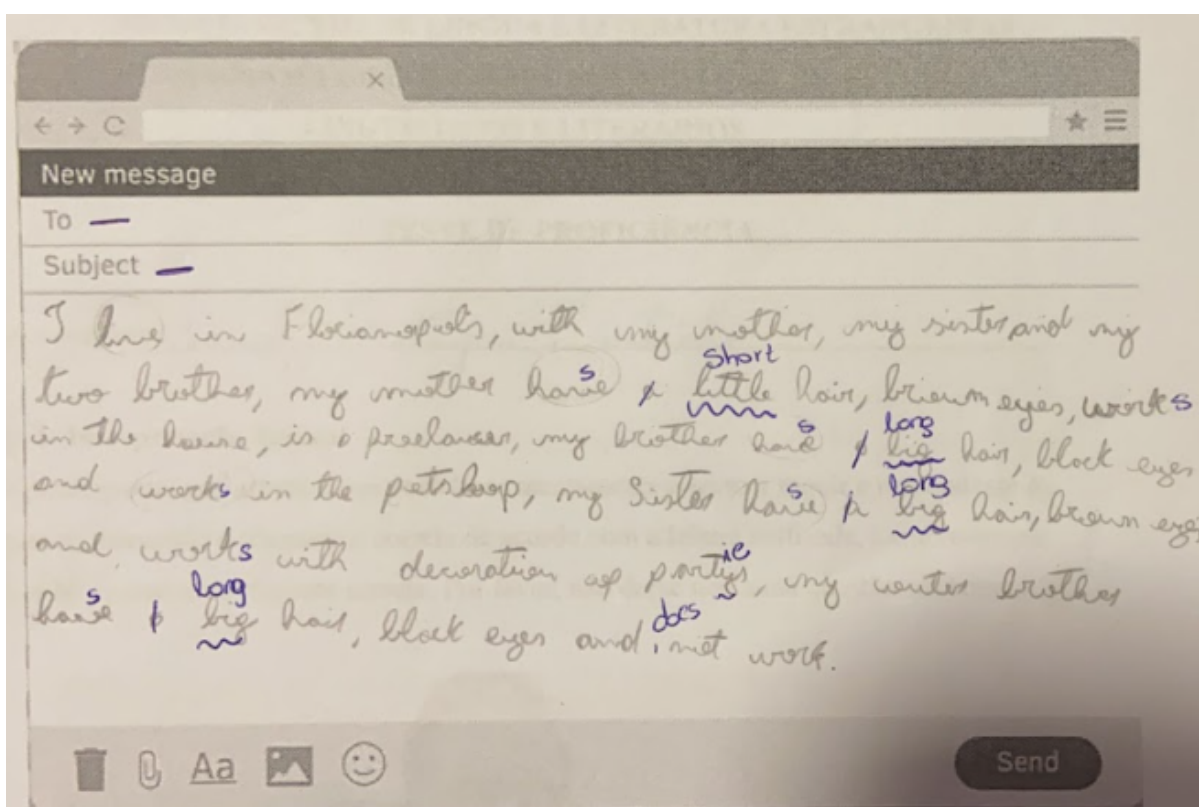 New message
To —
Subject —
I live in Florianopolis, with my mother, my sister and my
short
two brother, my mother haves a little hair, brown eyes, works
in the house, is a freelancer, my brother haves a big hair, black eyes
long
and works in the petshop, my sister haves a big hair, brown eyes
long
and works with decoration of partys, my outer brother
ie
haves a big hair, black eyes and not work.
long does
Aa
Send